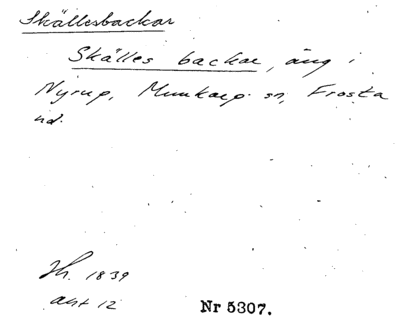 Skällesbackar
Skälles backar, äng i
Nyrup, Munkarp sn, Frosta
hd.
Jh. 1839
akt 12
Nr 5307.